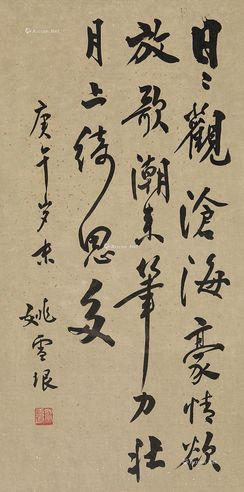 日々觀滄海豪情欲
放歌潮來筆力壯
月上綺思多
庚午歲末
姚雪垠